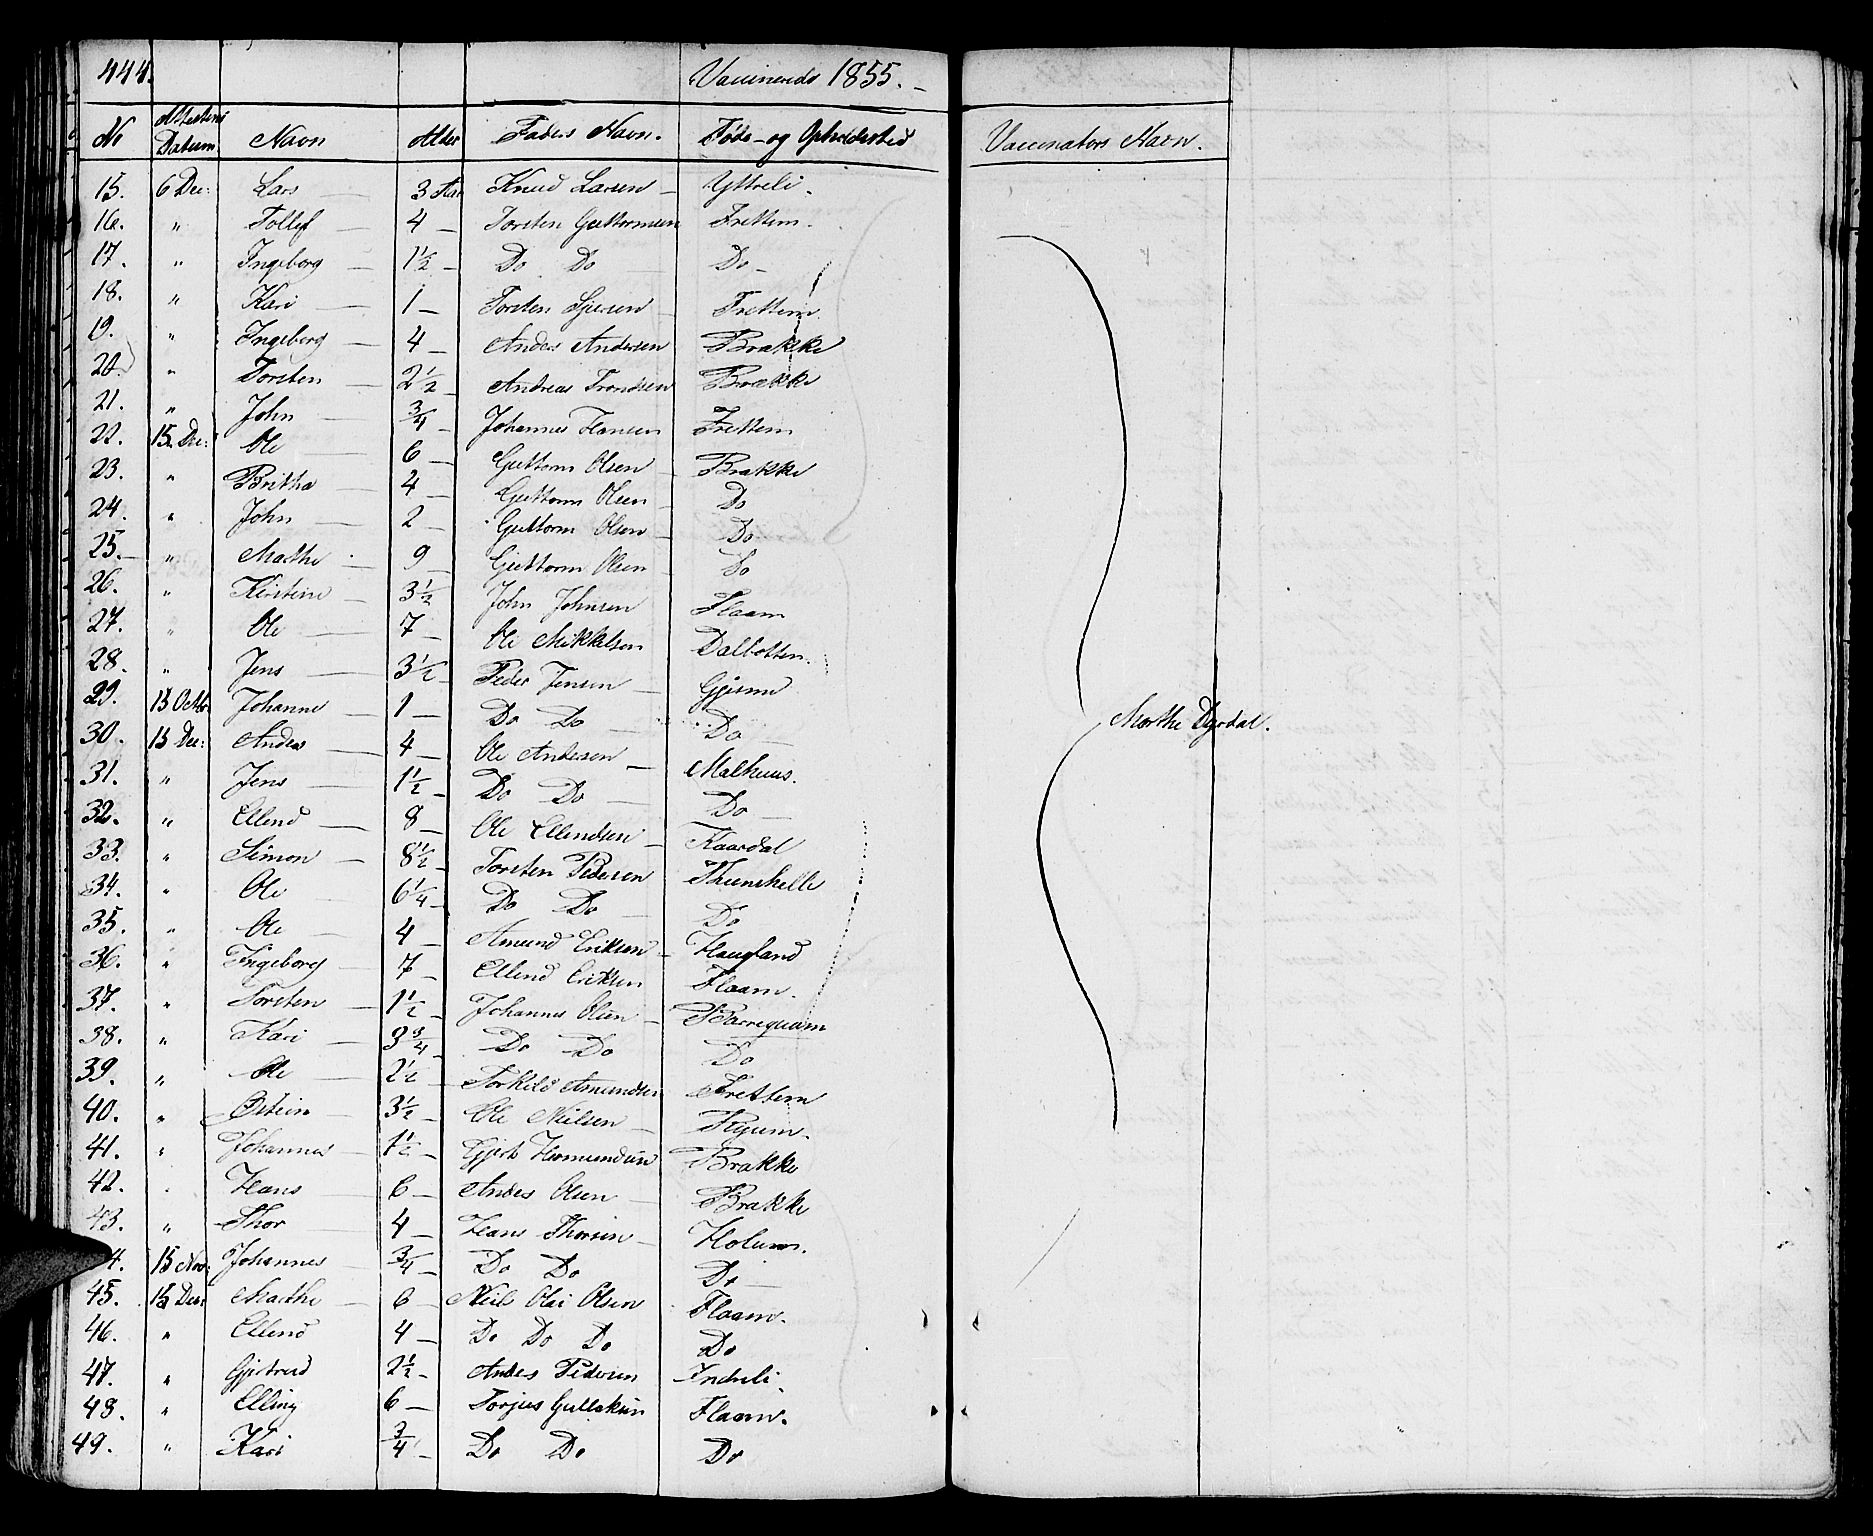 444. Vaccinerede 1855.-
No Attestens Datum Navn Alder Faders Navn. Føde- og Opholdssted Vaccinators Navn.
15. 6 Dec: Lars 3 Aar Knud Larsen Yttreli.
16. " Tollef 4 Torsten Guttormsen Frettem.
17. " Ingeborg 1½ Do Do Do
18. " Kari 1 Torsten Frettem.
19. " Ingeborg 4 Anders Andersen Brække
20. " Torsten 2½ Andreas Trondsen Brække
21. " John ¾ Johannes Hansen Frettem
22. 15. Dec: Ole 6 Guttorm Olsen Brække
23. " Britha 4 Guttorm Olsen Do
24. " John 2 Guttorm Olsen Do
25. " Marthe 9 Guttorm Olsen Do
26. " Kirstine 3½ John Johnsen Flaam
27. " Ole 7 Ole Mikkelsen Dalbotten.
28. " Jens 3½ Peder Jensen Gjerme
29. 15 Octbr Johanne 1 Do Do Do
Marthe Dyrdal.
30. 15 Dec: Anders 4 Ole Andersen Melhuus.
31. " Jens 1½ Do Do Do
32. " Ellend 8 Ole Ellendsen Kaardal
33. " Simon 8½ Torsten Pedersen Thunshelle
34. " Ole 6¼ Do Do Do
35. " Ole 4 Amund Eriksen Haugland
36. " Ingeborg 7 Ellend Eriksen Flaam.
37. " Torsten 1½ Johannes Olsen Berrequam
38. " Kari 3¾ Do Do Do
39. " Ole 2½ Torkild Amundsen Frettem
40. " Østein 3½ Ole Nielsen Ryum.
41. " Johannes 1½ Gjert Hermundsen Brække
42. " Hans 6 Andes Olsen Brække
43. " Thor 4 Hans Thorsen Holum.
4. 15 Nov: Johannes ¾ Do Do Do
45. 15 Dec: Marthe 6 Niel Olai Olsen Flaam.
46. " Ellend 4 Do Do Do Do
47. " Gjertrud 2½ Andes Pedersen Indreli.
48. " Elling 6 Torjus Gullaksen Flaam.
49. " Kari ¾ Do Do Do